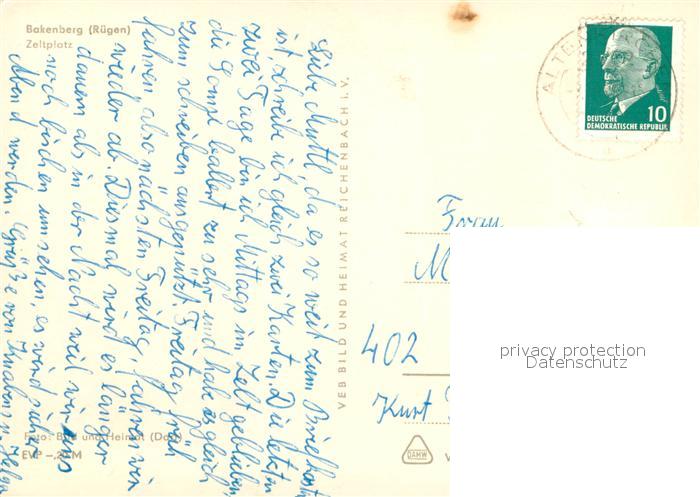 Bakenberg (Rügen)
Zeltplatz
Liebe Mutti, da es so weit zum Briefkasten
ist, schreibe ich gleich zwei Karten. Die letzten
zwei Tage bin ich Mittags im Zelt geblieben,
die Sonne ballert zu sehr und habe es gleich
zum schreiben ausgenützt. Freitag früh
fahren also nächsten Freitag, fahren wir
wieder ab. Diesmal wird es länger
dauern als in der Nacht weil wir uns
noch bischen umsehen, es wird sicher
Abend werden. Grüße von
Helga
Foto: Bild und Heimat
EVP -,20 M
VEB BILD UND HEIMAT REICHENBACH i. V.
DAMW
V
ALTEN
DEUTSCHE
DEMOKRATISCHE REPUBLIK
10
Frau
M
402
Kurt
privacy protection
Datenschutz